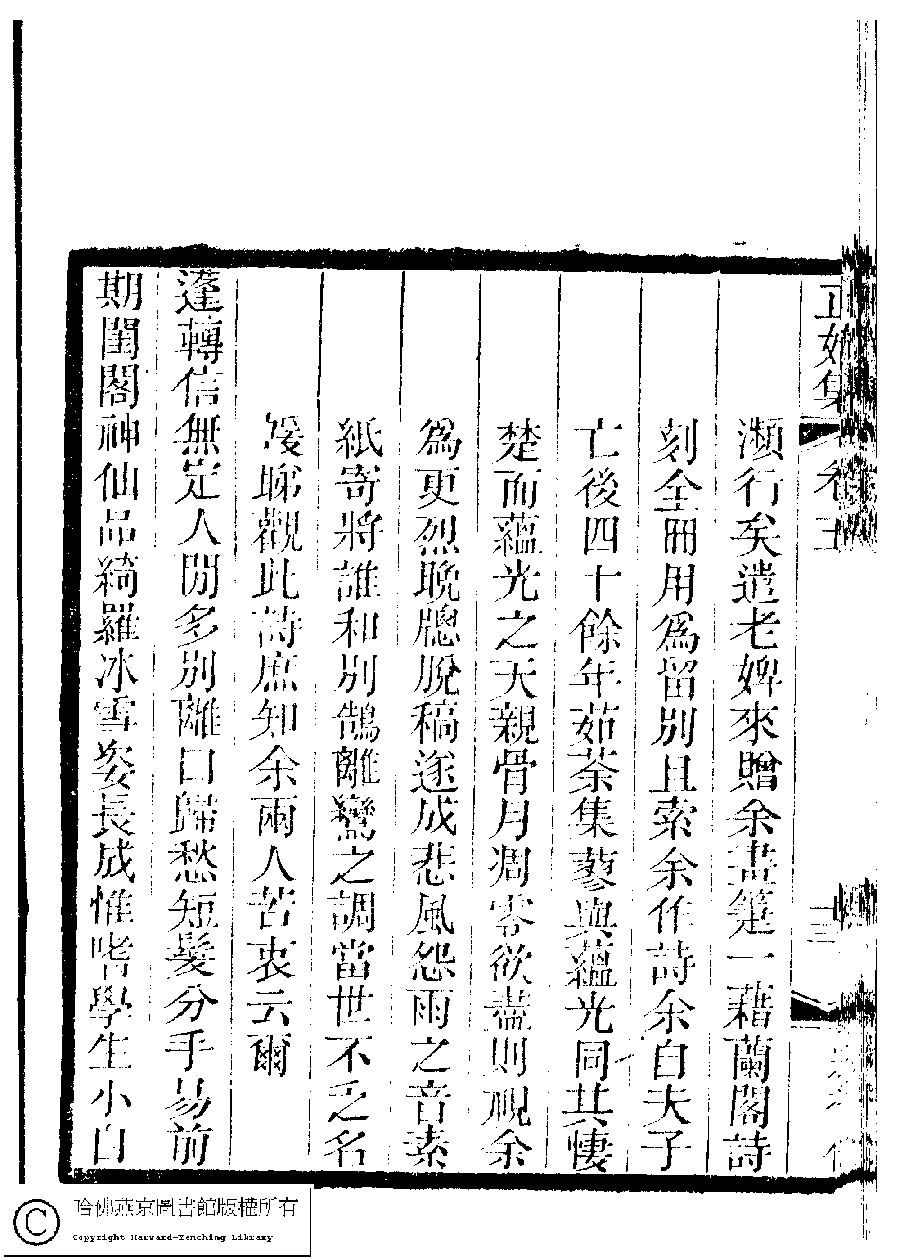 正始集 卷五 三
瀕行矣遣老婢來贈余畫箑一藉蘭閣詩
刻全冊用爲留別且索余作詩余自夫子
亡後四十餘年茹荼集蓼與蘊光同其悽
楚而蘊光之天親骨月凋零欲盡則視余
爲更烈晚牕脫稿遂成悲風怨雨之音素
紙寄將誰和別鵠離鸞之調當世不乏名
媛睇觀此詩庶知余兩人苦衷云爾
蓬轉信無定人閒多別離口歸愁短髮分手易前
期閨閣神仙品綺羅冰雪姿長成惟嗜學生小白
哈佛燕京圖書館版權所有
Copyright Harvard-Yenching Library